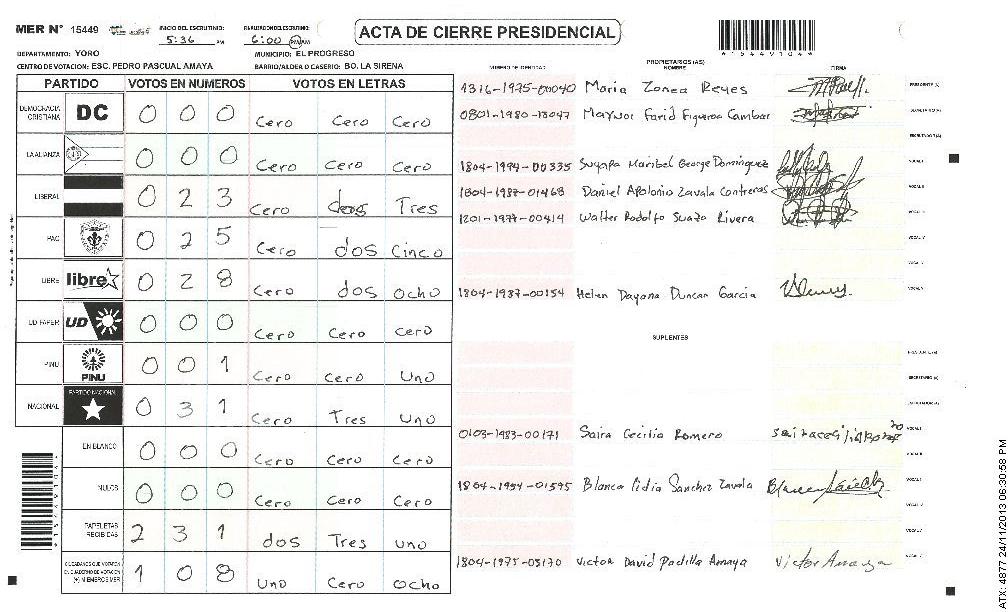 MER N° 15449 INICIO DEL ESCRUTINIO: 5:36 PM 6:00 ACTA DE CIERRE PRESIDENCIAL 15449104
DEPARTAMENTO: YORO MUNICIPIO: EL PROGRESO
CENTRO DE VOTACION: ESC. PEDRO PASCUAL AMAYA BARRIO/ALDEA O CASERIO: BO. LA SIRENA
NUMERO DE IDENTIDAD PROPIETARIOS (AS) NOMBRE FIRMA
PARTIDO VOTOS EN NUMEROS VOTOS EN LETRAS
DEMOCRACIA CRISTIANA DC 0 0 0 Cero Cero Cero
LA ALIANZA 0 0 0 Cero Cero Cero
LIBERAL 0 2 3 Cero dos Tres
PAC 0 2 5 Cero dos Cinco
LIBRE libre 0 2 8 Cero dos ocho
UD FAPER UD 0 0 0 Cero Cero Cero
PINU PINU 0 0 1 Cero Cero Uno
NACIONAL PARTIDO NACIONAL 0 3 1 Cero Tres Uno
EN BLANCO 0 0 0 Cero Cero Cero
NULOS 0 0 0 Cero Cero Cero
PAPELETAS RECIBIDAS 2 3 1 dos Tres uno
CIUDADANOS QUE VOTARON EN CUADERNO DE VOTACION (+) MIEMBROS MER 1 0 8 Uno Cero ocho
1316-1975-00040 Maria Zonea Reyes PRESIDENTE (A)
0801-1980-13047 Maynor Farid Figueroa Cambar SECRETARIO (A)
ESCRUTADOR (A)
1804-1994-00335 Suyapa Maribel George Dominguez VOCAL I
1804-1987-01468 Daniel Apolonio Zavala Contreras VOCAL II
1201-1977-00414 Walter Rodolfo Suazo Rivera
VOCAL IV
1804-1987-00154 Helen Dayana Duncan Garcia
SUPLENTES
SECRETARIO (A)
0103-1983-00171 Saira Cecilia Romero VOCAL I
VOCAL II
1804-1954-01595 Blanca Lidia Sanchez Zavala
1804-1975-03170 Victor David Padilla Amaya Victor Amaya
ATX: 4877 24/11/2013 06:30:58 PM